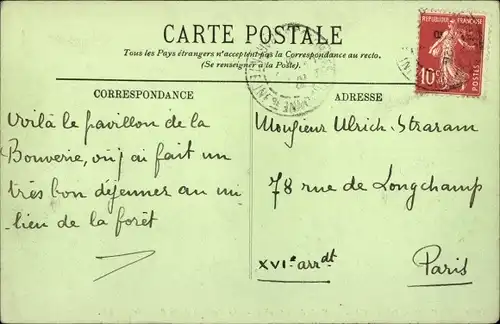 CARTE POSTALE
Tous les Pays étrangers n'acceptent pas la Correspondance au recto.
(Se renseigner à la Poste).
CORRESPONDANCE
ADRESSE
REPUBLIQUE FRANÇAISE
10c
POSTES
Voilà le pavillon de la
Bouverie, où j'ai fait un
très bon déjeuner au mi-
lieu de la forêt
Monsieur Ulrich-Straram
78 rue de Longchamp
XVIe arrdt
Paris